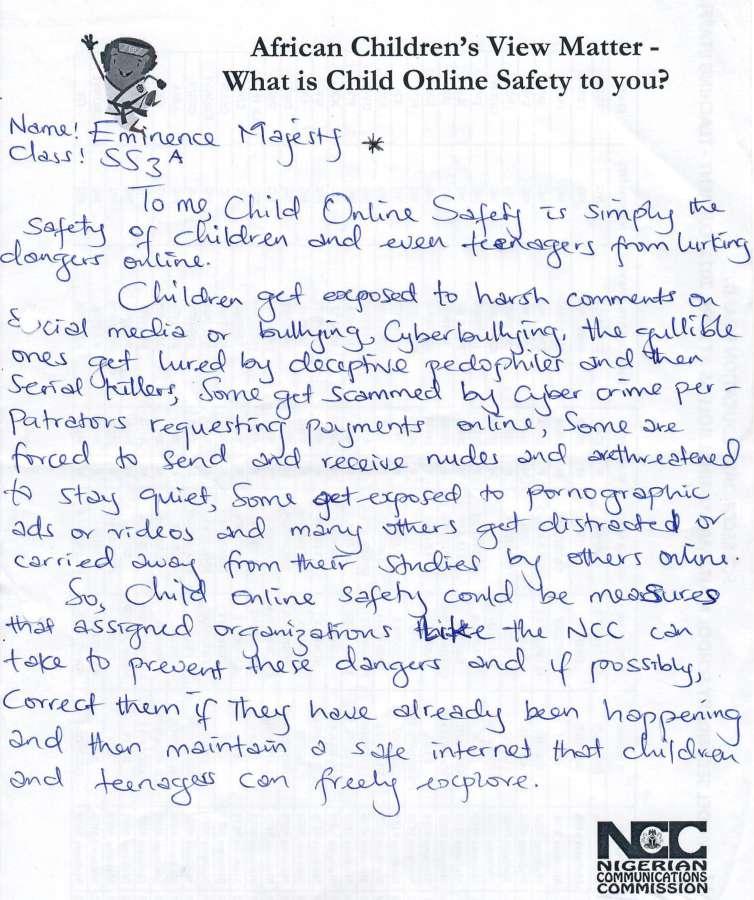 African Children's View Matter -
What is Child Online Safety to you?
Name! Eminence Majesty *
Class! SS3 A
To me, Child Online Safety is simply the
safety of children and even teenagers from lurking
dangers online.
Children get exposed to harsh comments on
social media or bullying, Cyberbullying, the gullible
ones get lured by deceptive pedophiles and then
Serial killers, Some get scammed by Cyber crime per-
Patrators requesting payments online, Some are
forced to send and receive nudes and are threatened
to stay quiet, Some get exposed to pornographic
ads or videos and many others get distracted or
carried away from their studies by others online.
So, Child online safety could be measures
that assigned organizations like the NCC can
take to prevent these dangers and if possibly,
Correct them if They have already been happening
and then maintain a safe internet that children
and teenagers can freely explore.
NCC
NIGERIAN
COMMUNICATIONS
COMMISSION